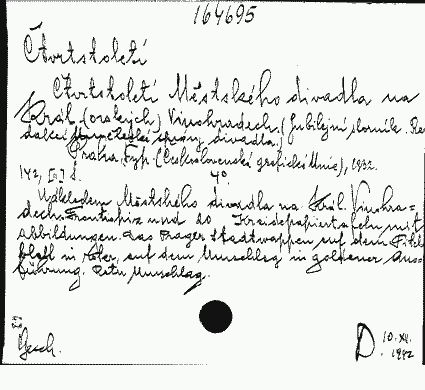 164695
Čtvrtstoletí
Čtvrtstoletí Městského divadla na
Král. (ovských) Vinohradech. (Jubilejní sborník. Re
dakcí správy divadla.)
Praha: Typ. (Československá grafická Unie), 1932.
142, [1] S. 4°
Nákladem Městského divadla na Král. Vinohra=
dech. Frontispiz und 20 Kreidepapiertafeln mit
Abbildungen. Das Prager Stadtwappen auf dem Titel=
blatt in Silber, auf dem Umschlag in goldener Aus=
führung. Rotu Umschlag.
Gesch.
D. 10. XII.
1942